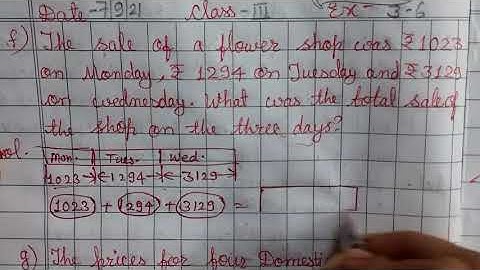 Date-7/9/21 Class-III Ex- 3-6
f) The sale of a flower shop was ₹1023
on Monday, ₹ 1294 on Tuesday and ₹3129
on wednesday. What was the total sale of
the shop on the three days?
sol. Mon. Tues. Wed.
1023 1294 3129
1023 + 1294 + 3129 =
g) The prices for four Domesti